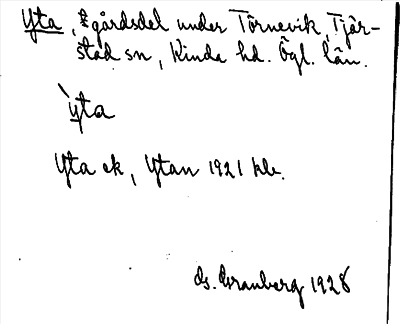 Yta, gårdsdel under Törnevik, Tjär-
stad sn, Kinda hd. Ögl. län.
`yta
Yta ek, Ytan 1921 kle.
G. Granberg 1928